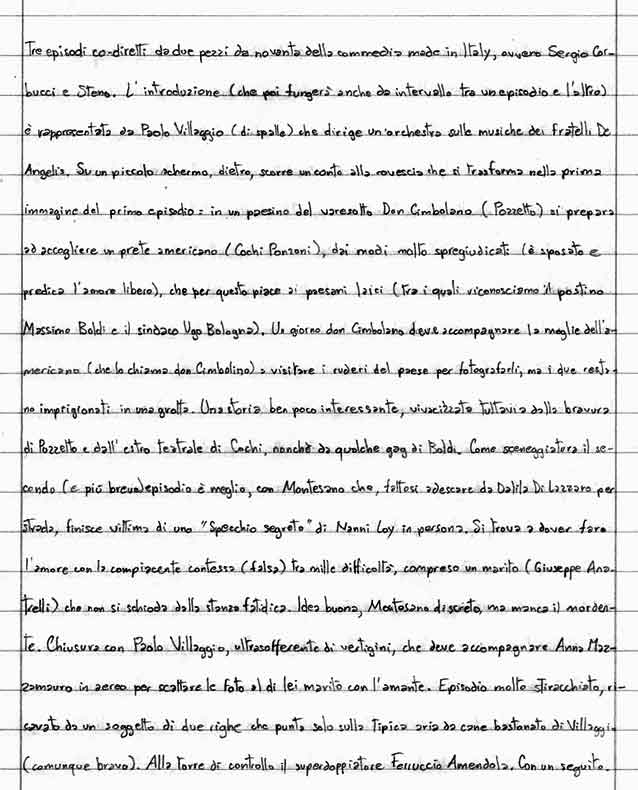 Tre episodi co-diretti da due pezzi da novanta della commedia made in Italy, ovvero Sergio Cor-
bucci e Steno. L'introduzione (che poi fungerà anche da intervallo tra un episodio e l'altro)
è rappresentata da Paolo Villaggio (di spalle) che dirige un'orchestra sulle musiche dei fratelli De
Angelis. Su un piccolo schermo, dietro, scorre un conto alla rovescia che si trasforma nella prima
immagine del primo episodio: in un paesino del varesotto Don Cimbolano (Pozzetto) si prepara
ad accogliere un prete americano (Cochi Ponzoni), dai modi molto spregiudicati (è sposato e
predica l'amore libero), che per questo piace ai paesani laici (tra i quali riconosciamo il postino
Massimo Boldi e il sindaco Ugo Bologna). Un giorno don Cimbolano deve accompagnare la moglie dell'a-
mericano (che lo chiama don Cimbolino) a visitare i ruderi del paese per fotografarli, ma i due resta-
no imprigionati in una grotta. Una storia ben poco interessante, vivacizzata tuttavia dalla bravura
di Pozzetto e dall'estro teatrale di Cochi, nonché da qualche gag di Boldi. Come sceneggiatura il se-
condo (e più breve) episodio è meglio, con Montesano che, fattosi adescare da Dalila Di Lazzaro per
strada, finisce vittima di uno "Specchio segreto" di Nanni Loy in persona. Si trova a dover fare
l'amore con la compiacente contessa (falsa) tra mille difficoltà, compreso un marito (Giuseppe Ana-
trelli) che non si schioda dalla stanza fatidica. Idea buona, Montesano discreto, ma manca il morden-
te. Chiusura con Paolo Villaggio, ultrasofferente di vertigini, che deve accompagnare Anna Maz-
zamauro in aereo per scattare le foto al di lei marito con l'amante. Episodio molto stiracchiato, ri-
cavato da un soggetto di due righe che punta solo sulla tipica aria da cane bastonato di Villaggio
(comunque bravo). Alla torre di controllo il superdoppiatore Ferruccio Amendola. Con un seguito.